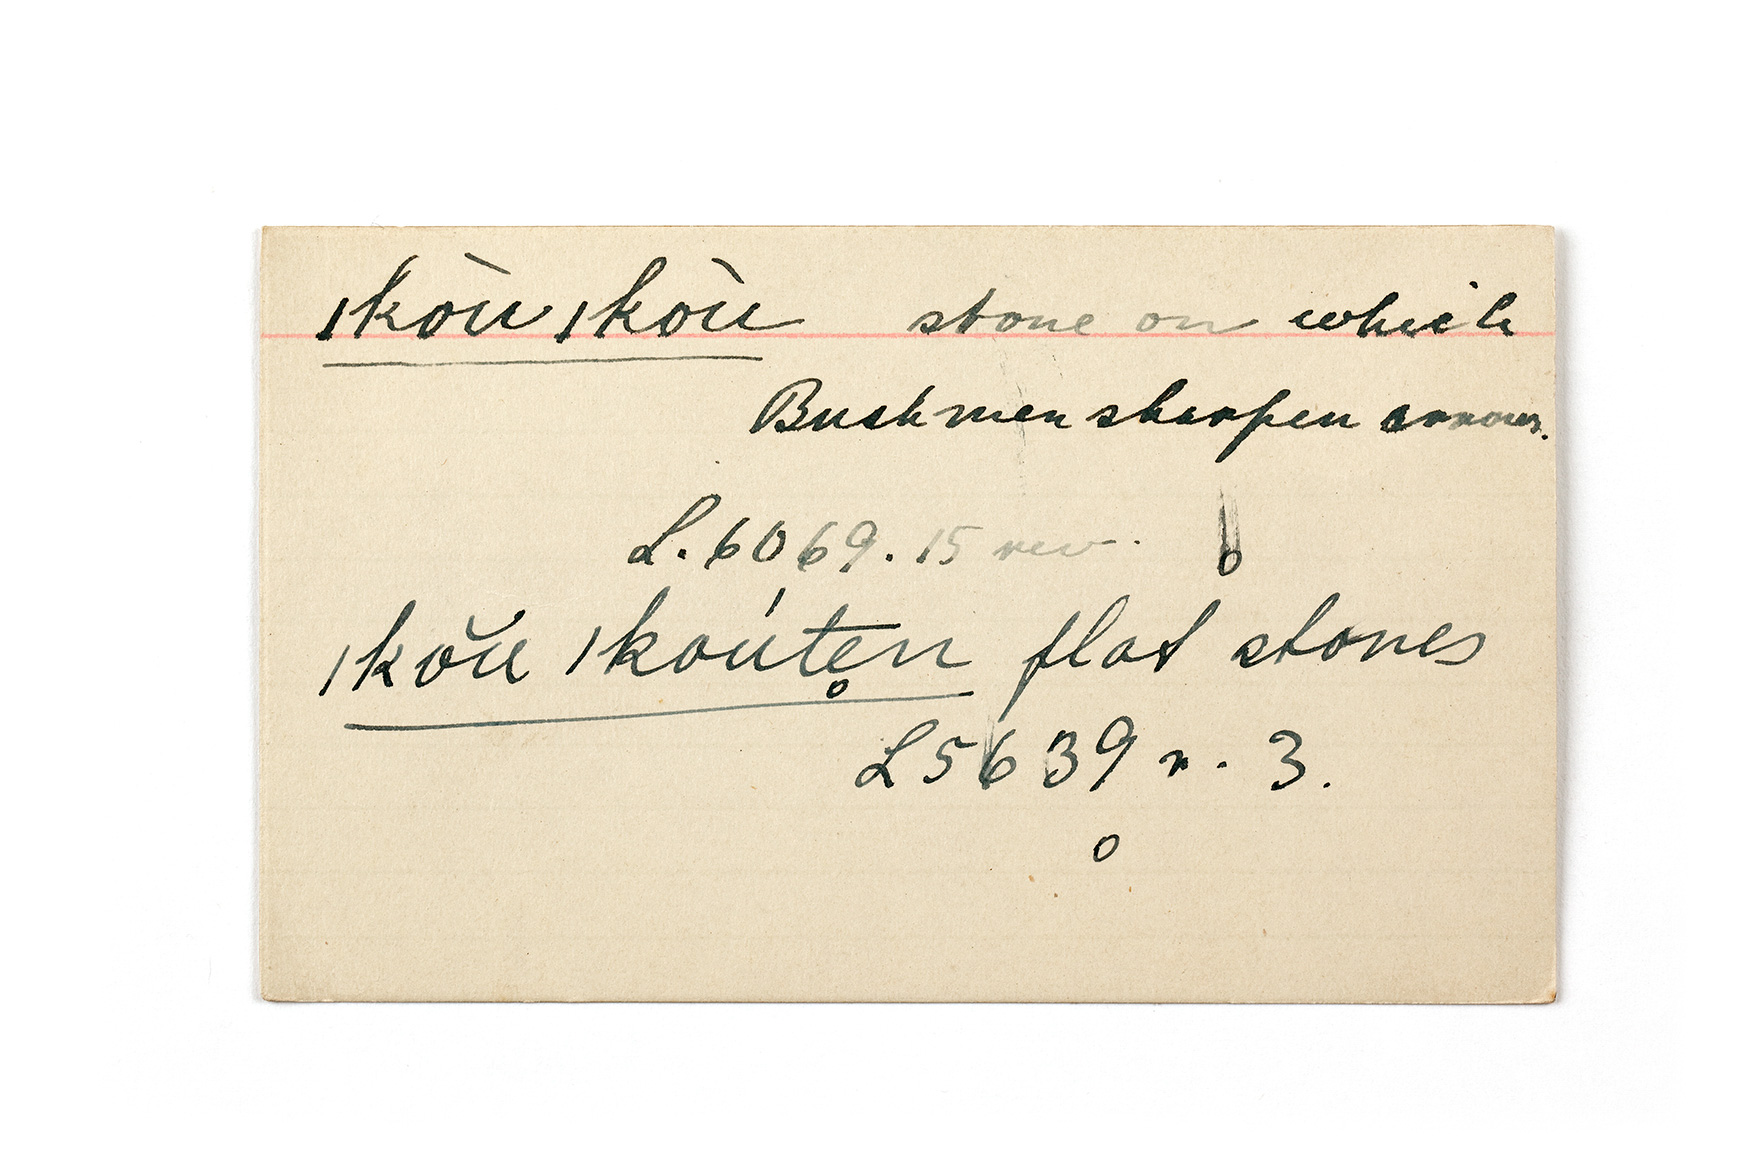 ǀkòu ǀkòu stone on which
Bushmen sharpen arrows.
L. 6069. 15 rev.
ǀkŏu ǀkoúte̥n flat stones
L 5639 r. 3.